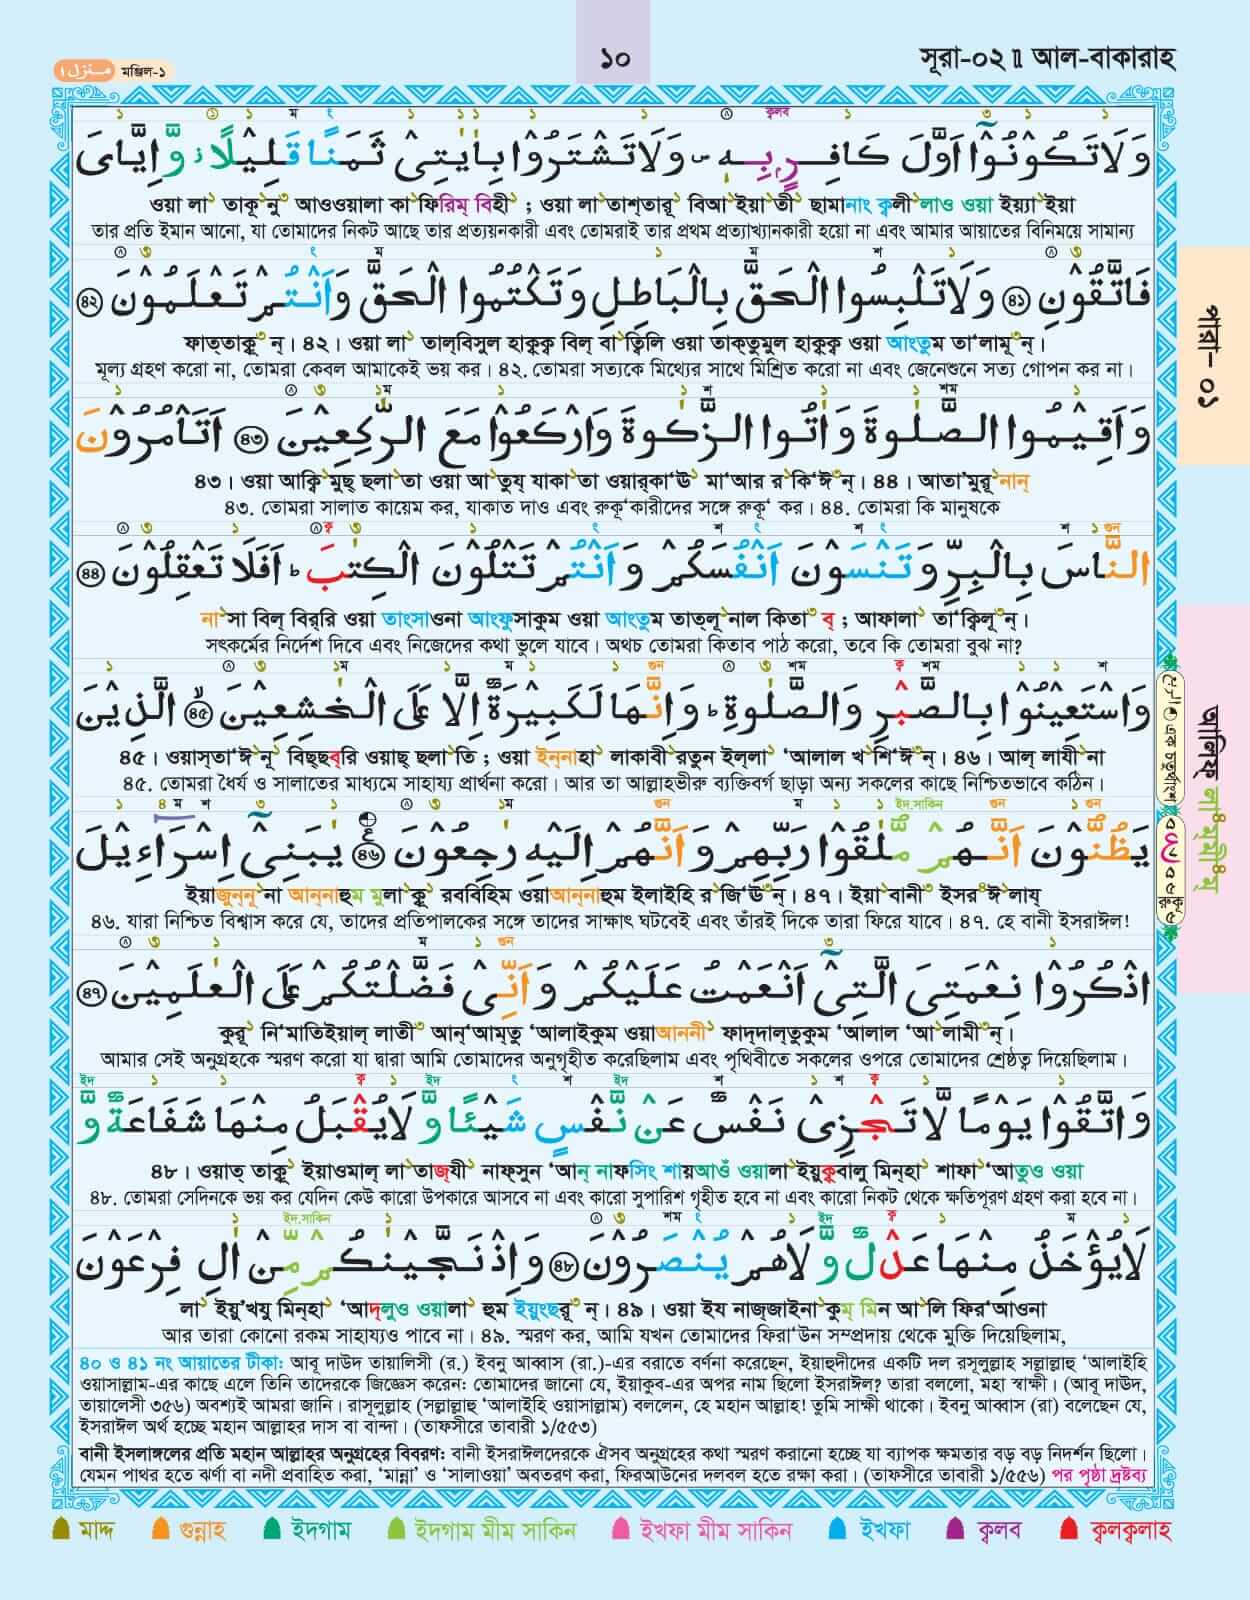 সূরা-০২ ۩ আল-বাকারাহ
১০
منزل ١ মঞ্জিল-১
وَلَا تَكُوْنُوْۤا اَوَّلَ كَافِرٍۭ بِهٖ ۪ وَلَا تَشْتَرُوْا بِاٰيٰتِىْ ثَمَنًا قَلِيْلًا ز وَّاِيَّاىَ
ওয়া লা তাকূনু আওওয়ালা কাফিরিম্ বিহী ; ওয়া লা তাশ্তারূ বিআইয়াতী ছামানাং ক্বলীলাও ওয়া ইয়্যাইয়া
তার প্রতি ইমান আনো, যা তোমাদের নিকট আছে তার প্রত্যয়নকারী এবং তোমরাই তার প্রথম প্রত্যাখ্যানকারী হয়ো না এবং আমার আয়াতের বিনিময়ে সামান্য
فَاتَّقُوْنِ ﴿৪১﴾ وَلَا تَلْبِسُوا الْحَقَّ بِالْبَاطِلِ وَتَكْتُمُوا الْحَقَّ وَاَنْتُمْ تَعْلَمُوْنَ ﴿৪২﴾
ফাত্তাক্কূন্। ৪২। ওয়া লা তাল্বিসুল হাক্বক্ব বিল্ বাত্বিলি ওয়া তাক্তুমুল হাক্বক্ব ওয়া আংতুম তা‘লামূন্।
মূল্য গ্রহণ করো না, তোমরা কেবল আমাকেই ভয় কর। ৪২. তোমরা সত্যকে মিথ্যের সাথে মিশ্রিত করো না এবং জেনেশুনে সত্য গোপন কর না।
وَاَقِيْمُوا الصَّلٰوةَ وَاٰتُوا الزَّكٰوةَ وَارْكَعُوْا مَعَ الرّٰكِعِيْنَ ﴿৪৩﴾ اَتَاْمُرُوْنَ
৪৩। ওয়া আক্বিমুছ্ ছলাতা ওয়া আতুয্ যাকাতা ওয়ার্কা‘ঊ মা‘আর রকি‘ঈন্। ৪৪। আতা’মুরূনান্
৪৩. তোমরা সালাত কায়েম কর, যাকাত দাও এবং রুকূ‘কারীদের সঙ্গে রুকূ‘ কর। ৪৪. তোমরা কি মানুষকে
النَّاسَ بِالْبِرِّ وَتَنْسَوْنَ اَنْفُسَكُمْ وَاَنْتُمْ تَتْلُوْنَ الْكِتٰبَ ؕ اَفَلَا تَعْقِلُوْنَ ﴿৪৪﴾
নাসা বিল্ বির্রি ওয়া তাংসাওনা আংফুসাকুম ওয়া আংতুম তাত্লূনাল কিতাব্ ; আফালা তা‘ক্বিলূন্।
সৎকর্মের নির্দেশ দিবে এবং নিজেদের কথা ভুলে যাবে। অথচ তোমরা কিতাব পাঠ করো, তবে কি তোমরা বুঝ না?
وَاسْتَعِيْنُوْا بِالصَّبْرِ وَالصَّلٰوةِ ؕ وَاِنَّهَا لَكَبِيْرَةٌ اِلَّا عَلَى الْخٰشِعِيْنَ ﴿৪৫﴾ الَّذِيْنَ
৪৫। ওয়াস্তা‘ঈনূ বিছ্ছব্রি ওয়াছ্ ছলাতি ; ওয়া ইন্নাহা লাকাবীরতুন ইল্লা ‘আলাল খশি‘ঈন্। ৪৬। আল্ লাযীনা
৪৫. তোমরা ধৈর্য ও সালাতের মাধ্যমে সাহায্য প্রার্থনা করো। আর তা আল্লাহভীরু ব্যক্তিবর্গ ছাড়া অন্য সকলের কাছে নিশ্চিতভাবে কঠিন।
يَظُنُّوْنَ اَنَّهُمْ مُّلٰقُوْا رَبِّهِمْ وَاَنَّهُمْ اِلَيْهِ رٰجِعُوْنَ ﴿৪৬﴾ يٰبَنِىْۤ اِسْرَآءِيْلَ
ইয়াজুন্নূনা আন্নাহুম মুলাক্কূ রববিহিম ওয়াআন্নাহুম ইলাইহি রজি‘ঊন্। ৪৭। ইয়াবানী ইসরাঈলায্
৪৬. যারা নিশ্চিত বিশ্বাস করে যে, তাদের প্রতিপালকের সঙ্গে তাদের সাক্ষাৎ ঘটবেই এবং তাঁরই দিকে তারা ফিরে যাবে। ৪৭. হে বানী ইসরাঈল!
اذْكُرُوْا نِعْمَتِىَ الَّتِىْۤ اَنْعَمْتُ عَلَيْكُمْ وَاَنِّىْ فَضَّلْتُكُمْ عَلَى الْعٰلَمِيْنَ ﴿৪৭﴾
কুরূ নি‘মাতিইয়াল্ লাতী আন্‘আম্তু ‘আলাইকুম ওয়াআননী ফাদ্দাল্তুকুম ‘আলাল ‘আলামীন্।
আমার সেই অনুগ্রহকে স্মরণ করো যা দ্বারা আমি তোমাদের অনুগৃহীত করেছিলাম এবং পৃথিবীতে সকলের ওপরে তোমাদের শ্রেষ্ঠত্ব দিয়েছিলাম।
وَاتَّقُوْا يَوْمًا لَّا تَجْزِىْ نَفْسٌ عَنْ نَّفْسٍ شَيْئًا وَّلَا يُقْبَلُ مِنْهَا شَفَاعَةٌ وَّ
৪৮। ওয়াত্ তাক্কূ ইয়াওমাল্ লা তাজ্যী নাফ্সুন ‘আন্ নাফসিং শায়আওঁ ওয়ালা ইয়ুক্ববালু মিন্হা শাফা‘আতুও ওয়া
৪৮. তোমরা সেদিনকে ভয় কর যেদিন কেউ কারো উপকারে আসবে না এবং কারো সুপারিশ গৃহীত হবে না এবং কারো নিকট থেকে ক্ষতিপূরণ গ্রহণ করা হবে না।
لَا يُؤْخَذُ مِنْهَا عَدْلٌ وَّلَا هُمْ يُنْصَرُوْنَ ﴿৪৮﴾ وَاِذْ نَجَّيْنٰكُمْ مِّنْ اٰلِ فِرْعَوْنَ
লা ইয়ু’খযু মিন্হা ‘আদ্লুও ওয়ালা হুম ইয়ুংছরূন্। ৪৯। ওয়া ইয নাজ্জাইনাকুম্ মিন আলি ফির‘আওনা
আর তারা কোনো রকম সাহায্যও পাবে না। ৪৯. স্মরণ কর, আমি যখন তোমাদের ফিরা‘উন সম্প্রদায় থেকে মুক্তি দিয়েছিলাম,
৪০ ও ৪১ নং আয়াতের টীকা: আবূ দাউদ তায়ালিসী (র.) ইবনু আব্বাস (রা.)-এর বরাতে বর্ণনা করেছেন, ইয়াহুদীদের একটি দল রসূলুল্লাহ সল্লাল্লাহু ‘আলাইহি
ওয়াসাল্লাম-এর কাছে এলে তিনি তাদেরকে জিজ্ঞেস করেন: তোমাদের জানো যে, ইয়াকুব-এর অপর নাম ছিলো ইসরাঈল? তারা বললো, মহা স্বাক্ষী। (আবূ দাঊদ,
তায়ালেসী ৩৫৬) অবশ্যই আমরা জানি। রাসূলুল্লাহ (সল্লাল্লাহু ‘আলাইহি ওয়াসাল্লাম) বললেন, হে মহান আল্লাহ! তুমি সাক্ষী থাকো। ইবনু আব্বাস (রা) বলেছেন যে,
ইসরাঈল অর্থ হচ্ছে মহান আল্লাহর দাস বা বান্দা। (তাফসীরে তাবারী ১/৫৫৩)
বানী ইসলাঈলের প্রতি মহান আল্লাহর অনুগ্রহের বিবরণ: বানী ইসরাঈলদেরকে ঐসব অনুগ্রহের কথা স্মরণ করানো হচ্ছে যা ব্যাপক ক্ষমতার বড় বড় নিদর্শন ছিলো।
যেমন পাথর হতে ঝর্ণা বা নদী প্রবাহিত করা, ‘মান্না’ ও ‘সালাওয়া’ অবতরণ করা, ফিরআউনের দলবল হতে রক্ষা করা। (তাফসীরে তাবারী ১/৫৫৬) পর পৃষ্ঠা দ্রষ্টব্য
মাদ্দ গুন্নাহ ইদগাম ইদগাম মীম সাকিন ইখফা মীম সাকিন ইখফা ক্বলব ক্বলক্বলাহ
পারা- ০১
আলিফ্ লাম্ মীম্